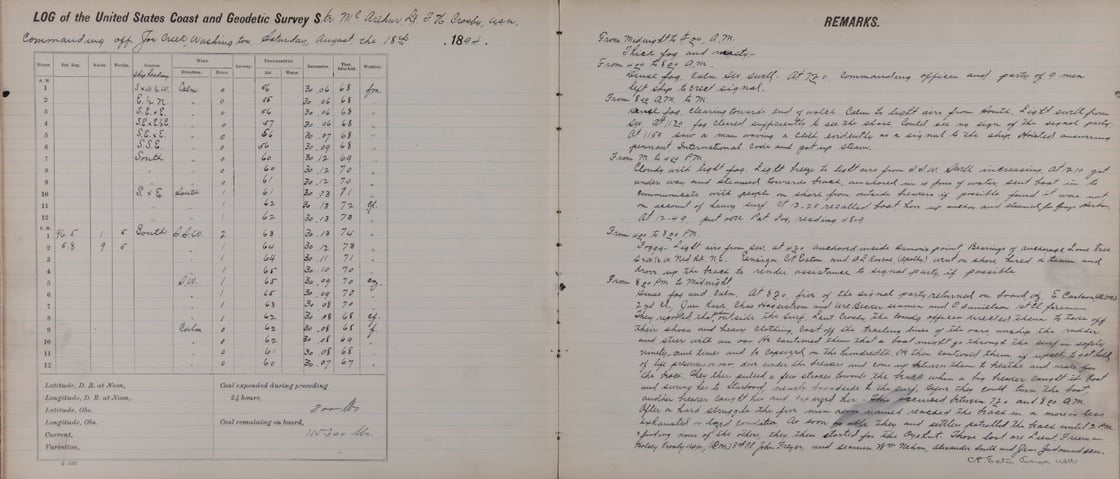 LOG of the United States Coast and Geodetic Survey Str Mc Arthur Lt. F. H. Crosby, USN.
Commanding off Joe Creek, Washington, Saturday, August the 18th, 1894.
REMARKS.
Hours. Pat. Log. Knots. Tenths. Courses. Wind. Leeway. Thermometer. Barometer. Weather.
Ship Heading Direction. Force. Air. Water.
A. M.
1 Calm 0 56 30.06 68 fm
2 0 55 30.06 68
3 0 56 30.06 68
4 0 57 30.06 68
5 0 56 30.07 68
6 S.S.E. 0 56 30.09 68
7 South 0 60 30.12 69
8 0 60 30.12 70
9 0 61 30.12 70
10 South 1 61 30.13 71
11 1 62 30.13 72
12 1 62 30.13 73
P. M.
1 96.5 1 5 South S.S.W. 2 63 30.13 74
2 5.8 9 5 1 64 30.12 73
3 1 64 30.11 71
4 1 65 30.10 70
5 S.W. 1 65 30.09 70
6 1 65 30.09 70
7 1 63 30.08 70
8 1 62 30.08 68 cf.
9 Calm 0 62 30.08 68 f.
10 0 62 30.08 69
11 0 61 30.08 68
12 0 60 30.07 67
Latitude, D. R. at Noon, Coal expended during preceding
Longitude, D. R. at Noon, 24 hours,
Latitude, Obs. 800 lbs.
Longitude, Obs. Coal remaining on board,
Current, lbs.
Variation,
From Midnight to 4.00, A.M.
Thick fog and misty.
From 4.00 to 8.00 A.M.
Dense fog. Calm. SW. swell. At 7.20, Commanding officer and party of 9 men
left ship to erect signal.
From 8.00 A.M. to M.
Dense fog, clearing towards end of watch. Calm to light airs from South. Light swell from
SW. At 11.20 fog cleared sufficiently to see the shore. Could see no sign of the signal party.
At 11.50 saw a man waving a cloth evidently as a signal to the ship. Hoisted answering
pennant International Code and got up steam.
From M. to 4.00 P.M.
Cloudy with light fog. Light breeze to light airs from S.S.W. Swell increasing. At 12.10 got
under way and steamed towards beach, anchored in fms of water, sent boat in to
communicate with people on shore from outside breakers if possible, found it was not
on account of heavy surf. At 12.25 recalled boat hove up anchor and steamed for Grays Harbor.
At 12.49 put over Pat. Log, reading 48.9
From 4.00 to 8.00 P.M.
Foggy. Light airs from SW. at 4.20 anchored inside point. Bearings of anchorage Lone tree
Ensign C.P. Eaton and went on shore, hired a team and
drove up the beach to render assistance to signal party if possible.
From 8.00 P.M. to Midnight.
Dense fog and Calm. At 8.30, five of the signal party returned on board, viz. E. Carlson
2nd Cl. seamen and O. Danielson 1st Cl. fireman.
They reported that outside the surf, Lieut Crosby the Comdg officer directed them to take off
their shoes and heavy clothing, cast off the trailing lines of the oars, unship the rudder
and steer with an oar. He cautioned them that a boat might go through the surf in safety
ninety nine times and be capsized on the hundredth. He then cautioned them if upset to get hold
of life preserver or oar, dive under the breakers and come up between them to breathe and make for
the beach. They then pulled a few strokes toward the beach when a big breaker caught the boat
and swung her to starboard, nearly broadside to the surf. Before they could turn the boat
another breaker caught her and capsized her. This occurred between 7.30 and 8.00 A.M.
After a hard struggle the five men above named reached the beach in a more or less
exhausted or dazed condition. As soon as able they and settlers patrolled the beach until 2 P.M.
finding none of the others, they then started for the Those lost are Lieut Freeman
Halsey Crosby, USN, John Freyer, and seamen Wm Nehm, Alexander Smith and Jens Gudmundsen.
C.P. Eaton, Ensign, USN